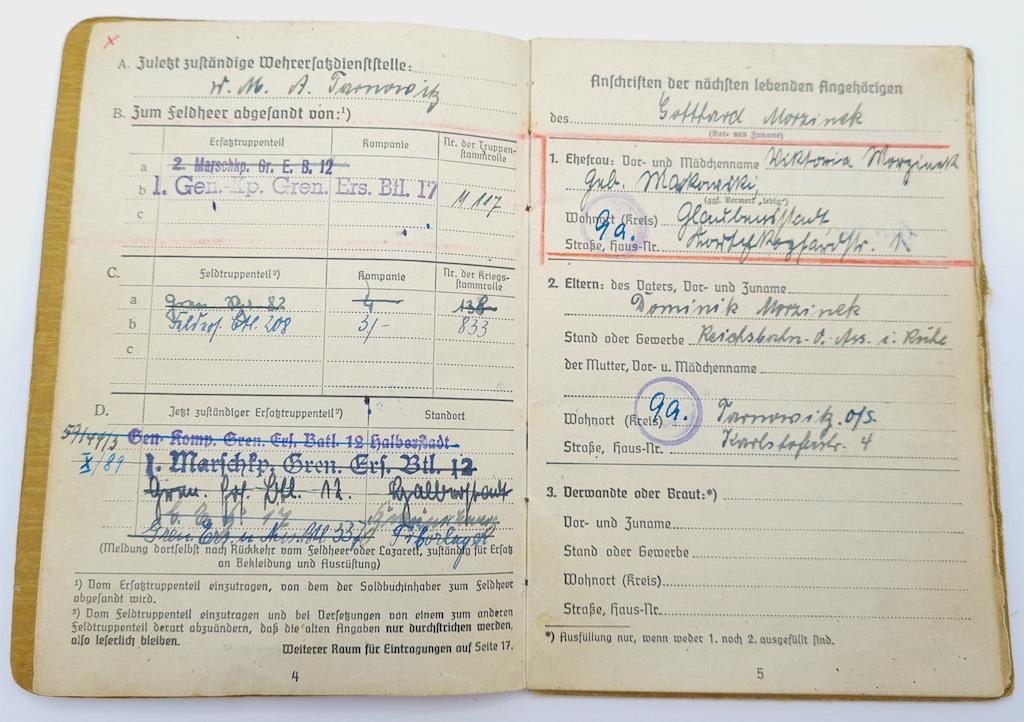 A. Zuletzt zuständige Wehrersatzdienststelle:
W. M. A. Tarnowitz
B. Zum Feldheer abgesandt von:¹)
Ersatztruppenteil Kompanie Nr. der Truppenstammrolle
a 2. Marschkp. Gr. E. B. 12
b 1. Gen.-Kp. Gren. Ers. Btl. 17 11 117
c
C. Feldtruppenteil²) Kompanie Nr. der Kriegsstammrolle
a Gren. 82 4 138
b Btl. 208 3/- 833
c
D. Jetzt zuständiger Ersatztruppenteil²) Standort
Gen. Komp. Gren. Ers. Batl. 12 Halberstadt
1. Marschkp. Gren. Ers. Btl. 12
Gren. Btl. 12. Halberstadt
17
Gren. Ers. u. Btl. 337 Tiborlager
(Meldung dortselbst nach Rückkehr vom Feldheer oder Lazarett, zuständig für Ersatz
an Bekleidung und Ausrüstung)
¹) Vom Ersatztruppenteil einzutragen, von dem der Soldbuchinhaber zum Feldheer
abgesandt wird.
²) Vom Feldtruppenteil einzutragen und bei Versetzungen von einem zum anderen
Feldtruppenteil derart abzuändern, daß die alten Angaben nur durchstrichen werden,
also leserlich bleiben.
Weiterer Raum für Eintragungen auf Seite 17.
4
Anschriften der nächsten lebenden Angehörigen
des Gotthard Morzinek
(Vor- und Zuname)
1. Ehefrau: Vor- und Mädchenname Wiktoria Morzinek
geb. Maskowski,
(ggf. Vermerk „ledig")
Wohnort (Kreis) Glaubensstadt
ga.
Straße, Haus-Nr. 1.
2. Eltern: des Vaters, Vor- und Zuname
Dominik Morzinek
Stand oder Gewerbe Reichsbahn-O.-Ass. i. Ruhe
der Mutter, Vor- u. Mädchenname
Wohnort (Kreis) Tarnowitz O/S.
ga.
Straße, Haus-Nr. 4
3. Verwandte oder Braut:*)
Vor- und Zuname
Stand oder Gewerbe
Wohnort (Kreis)
Straße, Haus-Nr.
*) Ausfüllung nur, wenn weder 1. noch 2. ausgefüllt sind.
5